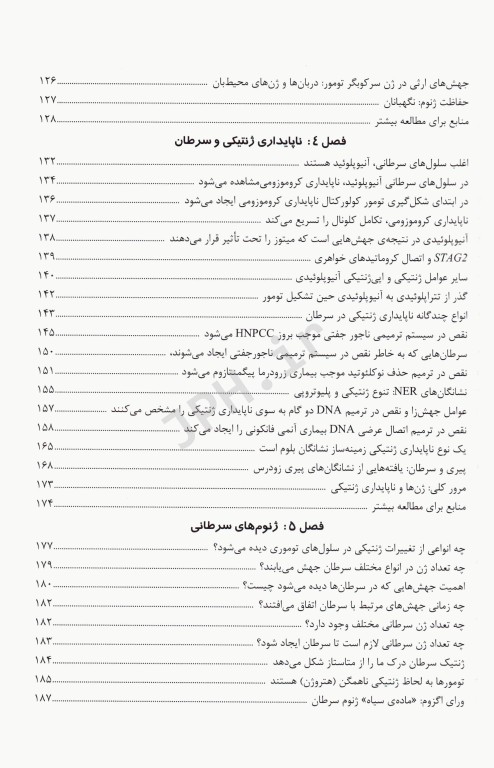 جهش‌های ارثی در ژن سرکوبگر تومور: دربان‌ها و ژن‌های محیط‌بان ........ ۱۲۶
حفاظت ژنوم: نگهبانان ........ ۱۲۷
منابع برای مطالعه بیشتر ........ ۱۲۸
فصل ۴: ناپایداری ژنتیکی و سرطان
اغلب سلول‌های سرطانی، آنیوپلوئید هستند ........ ۱۳۲
در سلول‌های سرطانی آنیوپلوئید، ناپایداری کروموزومی‌مشاهده می‌شود ........ ۱۳۴
در ابتدای شکل‌گیری تومور کولورکتال ناپایداری کروموزومی ایجاد می‌شود ........ ۱۳۶
ناپایداری کروموزومی، تکامل کلونال را تسریع می‌کند ........ ۱۳۷
آنیوپلوئیدی در نتیجه‌ی جهش‌هایی است که میتوز را تحت تأثیر قرار می‌دهند ........ ۱۳۸
STAG2 و اتصال کروماتیدهای خواهری ........ ۱۳۹
سایر عوامل ژنتیکی و اپی‌ژنتیکی آنیوپلوئیدی ........ ۱۴۰
گذر از تتراپلوئیدی به آنیوپلوئیدی حین تشکیل تومور ........ ۱۴۲
انواع چندگانه ناپایداری ژنتیکی در سرطان ........ ۱۴۳
نقص در سیستم ترمیمی ناجور جفتی موجب بروز HNPCC می‌شود ........ ۱۴۵
سرطان‌هایی که به خاطر نقص در سیستم ترمیمی ناجورجفتی ایجاد می‌شوند، ........ ۱۵۰
نقص در ترمیم حذف نوکلئوتید موجب بیماری زرودرما پیگمنتازوم می‌شود ........ ۱۵۱
نشانگان‌های NER: تنوع ژنتیکی و پلیوتروپی ........ ۱۵۵
عوامل جهش‌زا و نقص در ترمیم DNA دو گام به سوی ناپایداری ژنتیکی را مشخص می‌کنند ........ ۱۵۷
نقص در ترمیم اتصال عرضی DNA بیماری آنمی فانکونی را ایجاد می‌کند ........ ۱۵۸
یک نوع ناپایداری ژنتیکی زمینه‌ساز نشانگان بلوم است ........ ۱۶۵
پیری و سرطان: یافته‌هایی از نشانگان‌های پیری زودرس ........ ۱۶۸
مرور کلی: ژن‌ها و ناپایداری ژنتیکی ........ ۱۷۳
منابع برای مطالعه بیشتر ........ ۱۷۴
فصل ۵: ژنوم‌های سرطانی
چه انواعی از تغییرات ژنتیکی در سلول‌های توموری دیده می‌شود؟ ........ ۱۷۷
چه تعداد ژن در انواع مختلف سرطان جهش می‌یابند؟ ........ ۱۷۹
اهمیت جهش‌هایی که در سرطان‌ها دیده می‌شود چیست؟ ........ ۱۸۰
چه زمانی جهش‌های مرتبط با سرطان اتفاق می‌افتند؟ ........ ۱۸۲
چه تعداد ژن سرطانی مختلف وجود دارد؟ ........ ۱۸۲
چه تعداد ژن سرطانی لازم است تا سرطان ایجاد شود؟ ........ ۱۸۳
ژنتیک سرطان درک ما را از متاستاز شکل می‌دهد ........ ۱۸۴
تومورها به لحاظ ژنتیکی ناهمگن (هتروژن) هستند ........ ۱۸۵
ورای اگزوم: «ماده‌ی سیاه» ژنوم سرطان ........ ۱۸۷
JPH.ir